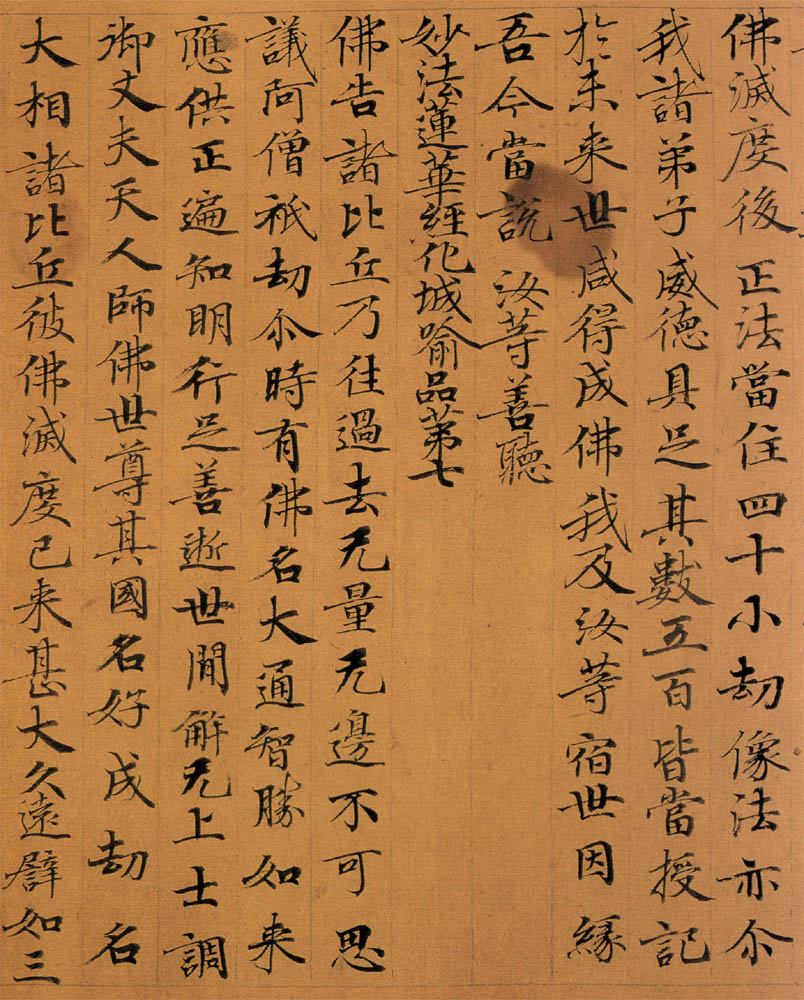 佛滅度後 正法當住 四十小劫 像法亦尒
我諸弟子 威德具足 其數五百 皆當授記
於未来世 咸得成佛 我及汝等 宿世因縁
吾今當說 汝等善聽
妙法蓮華經化城喻品苐七
佛告諸比丘乃往過去无量无邊不可思
議阿僧祇劫尒時有佛名大通智勝如来
應供正遍知明行足善逝世間解无上士調
御丈夫天人師佛世尊其國名好成劫名
大相諸比丘彼佛滅度已来甚大久遠譬如三